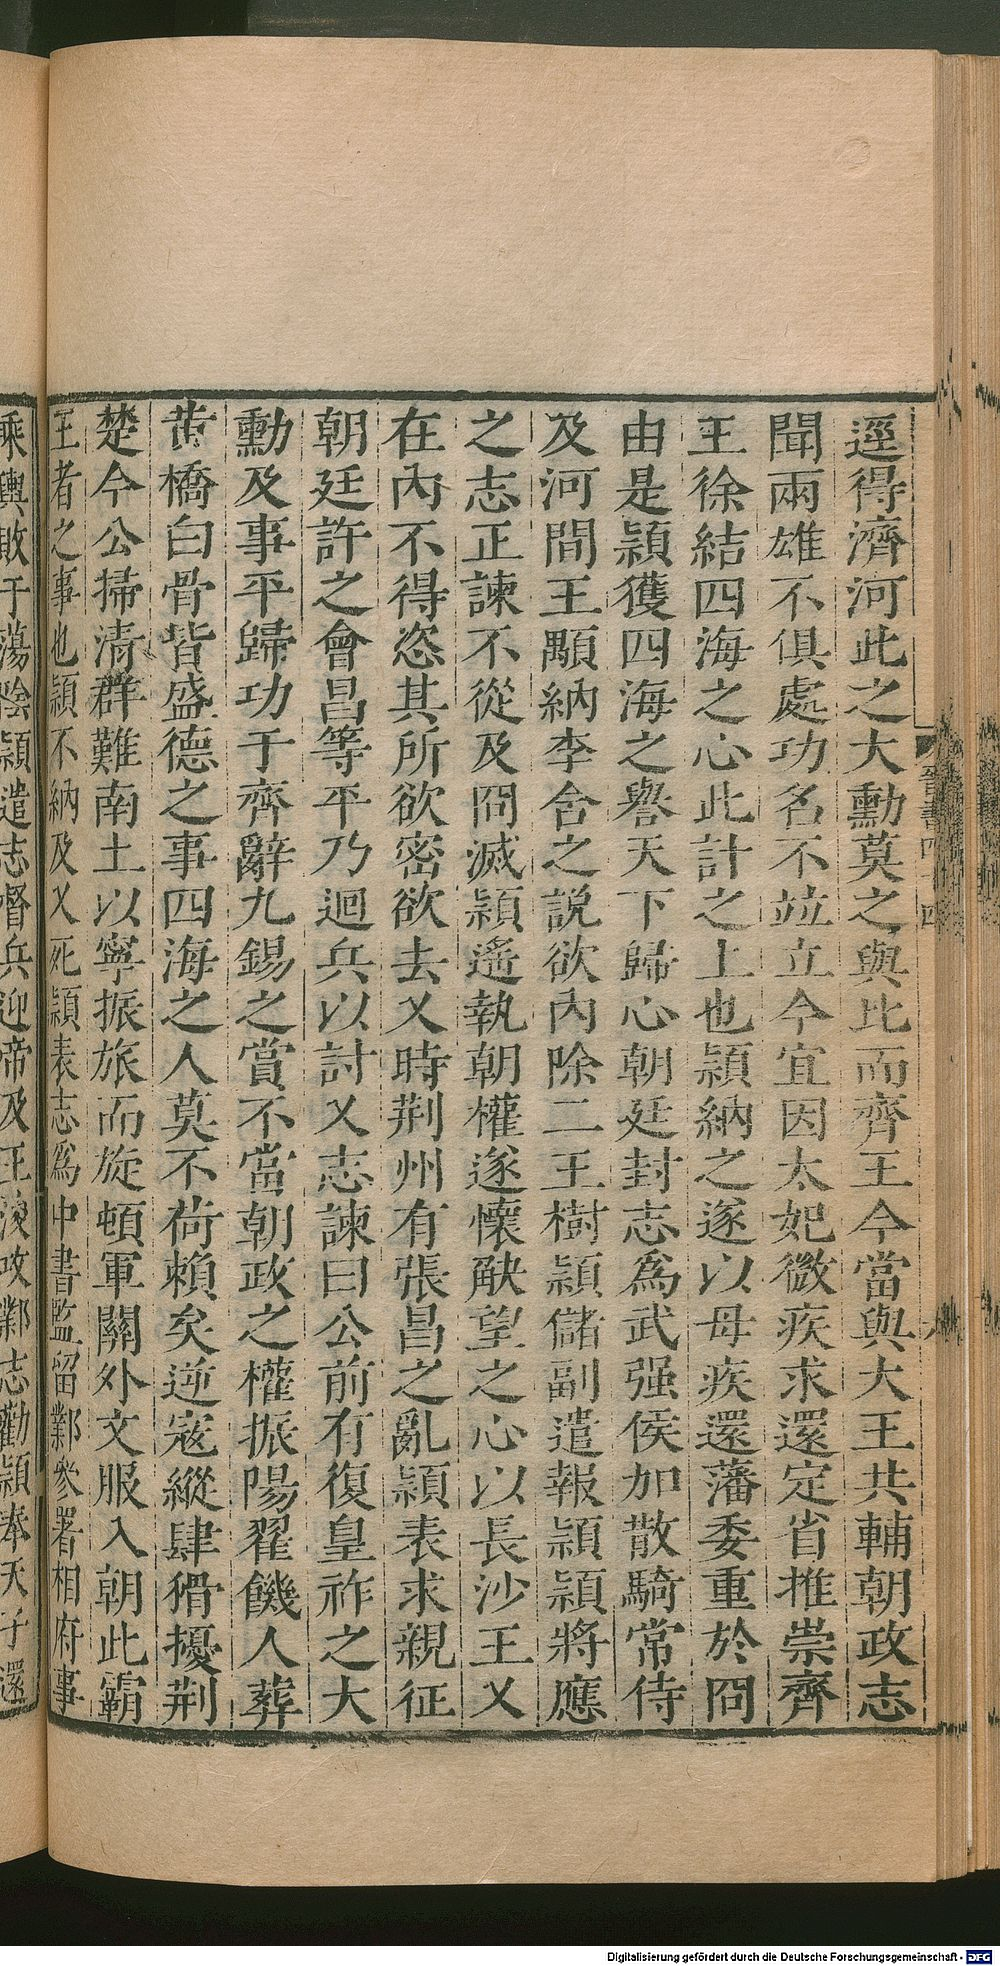 逕得濟河此之大勳莫之與比而齊王今當與大王共輔朝政志
聞兩雄不俱處功名不竝立今宜因太妃微疾求還定省推崇齊
王徐結四海之心此計之上也頴納之遂以母疾還藩委重於冏
由是頴獲四海之譽天下歸心朝廷封志爲武强侯加散騎常侍
及河間王顒納李含之説欲內除二王樹頴儲副遣報頴頴將應
之志正諫不從及冏滅頴遙執朝權遂懷觖望之心以長沙王乂
在內不得恣其所欲密欲去乂時荆州有張昌之亂頴表求親征
朝廷許之會昌等平乃迴兵以討乂志諫曰公前有復皇祚之大
勳及事平歸功于齊辭九錫之賞不當朝政之權振陽翟饑人葬
黄橋白骨皆盛德之事四海之人莫不荷賴矣逆宼縱肆猾擾荆
楚今公掃清群難南土以寧振旅而旋頓軍關外文服入朝此霸
王者之事也頴不納及乂死頴表志爲中書監留鄴參署相府事
乘輿敗于蕩陰頴遣志督兵迎帝及王浚攻鄴志勸頴奉天子還
晉書四十四
Digitalisierung gefördert durch die Deutsche Forschungsgemeinschaft - DFG